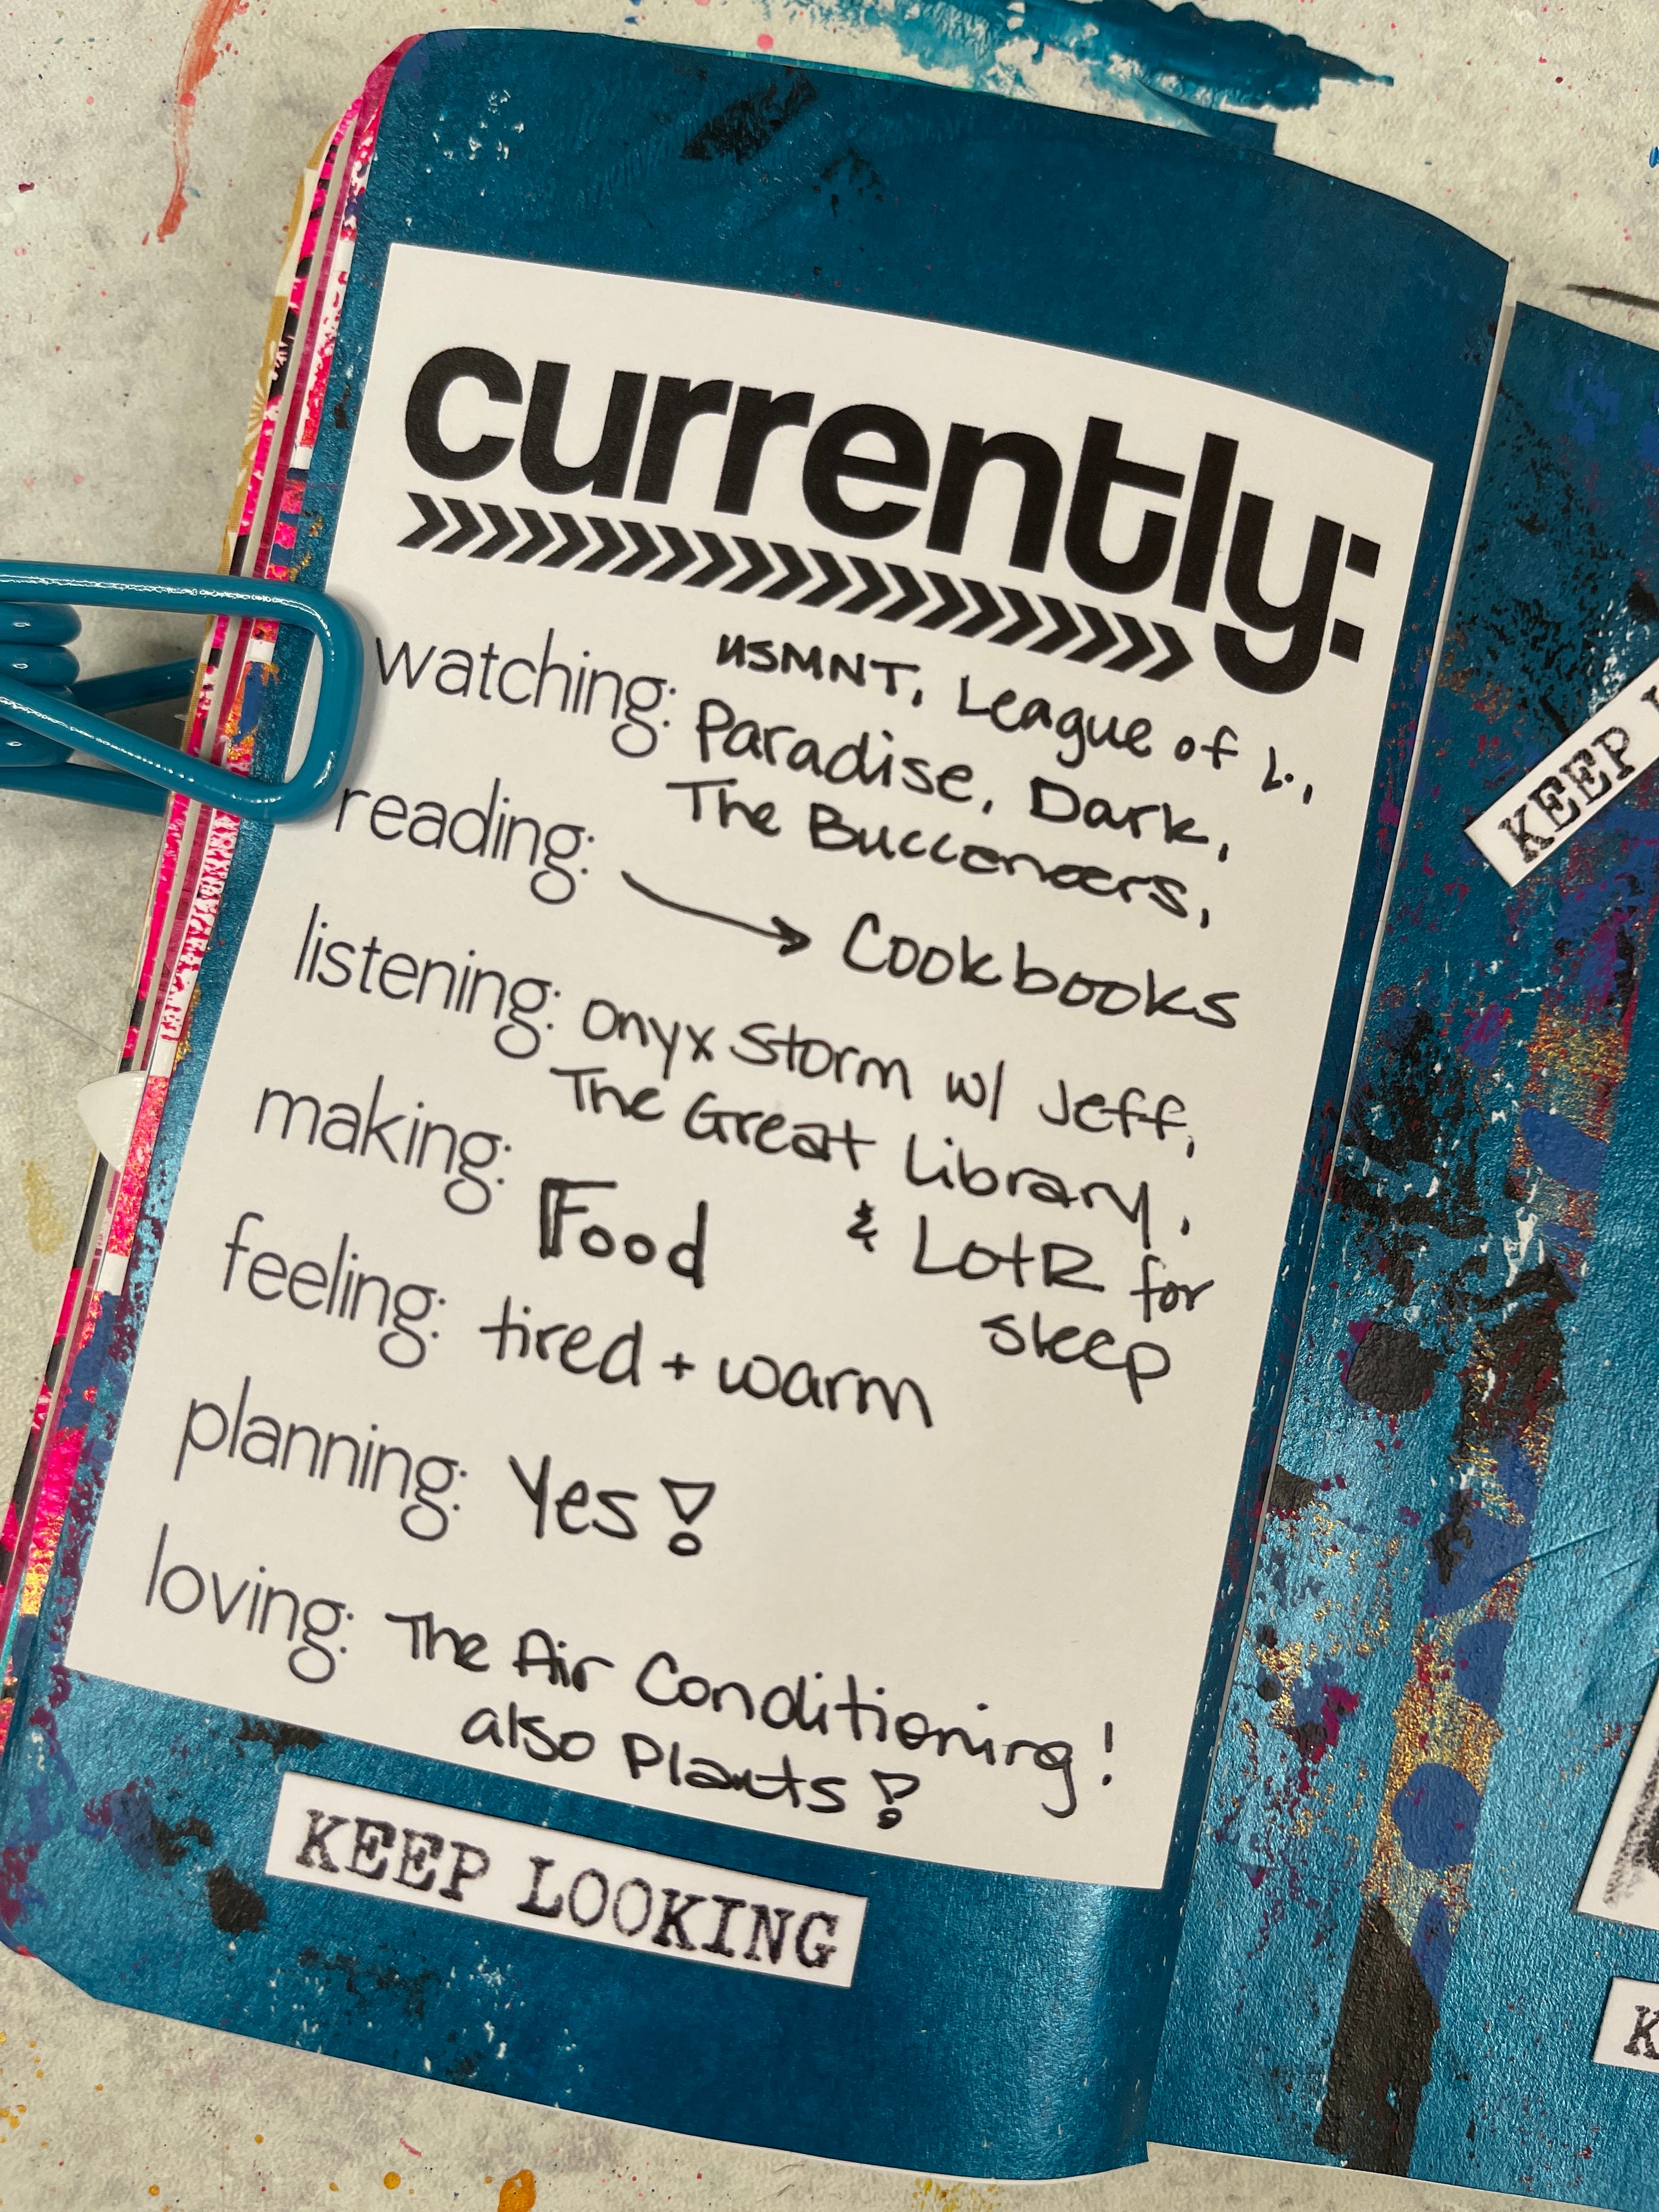 currently:
watching: USMNT, League of L.,
Paradise, Dark,
The Buccaneers,
reading: → Cookbooks
listening: Onyx Storm w/ Jeff,
The Great Library,
& LotR for
sleep
making: Food
feeling: tired + warm
planning: Yes!
loving: The Air Conditioning!
also Plants!
KEEP LOOKING
KEEP
K